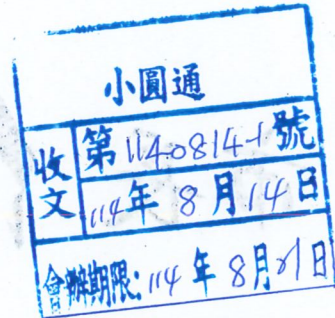 小圓通
收文
第1140814-1號
114年8月14日
會辦期限:114年8月21日